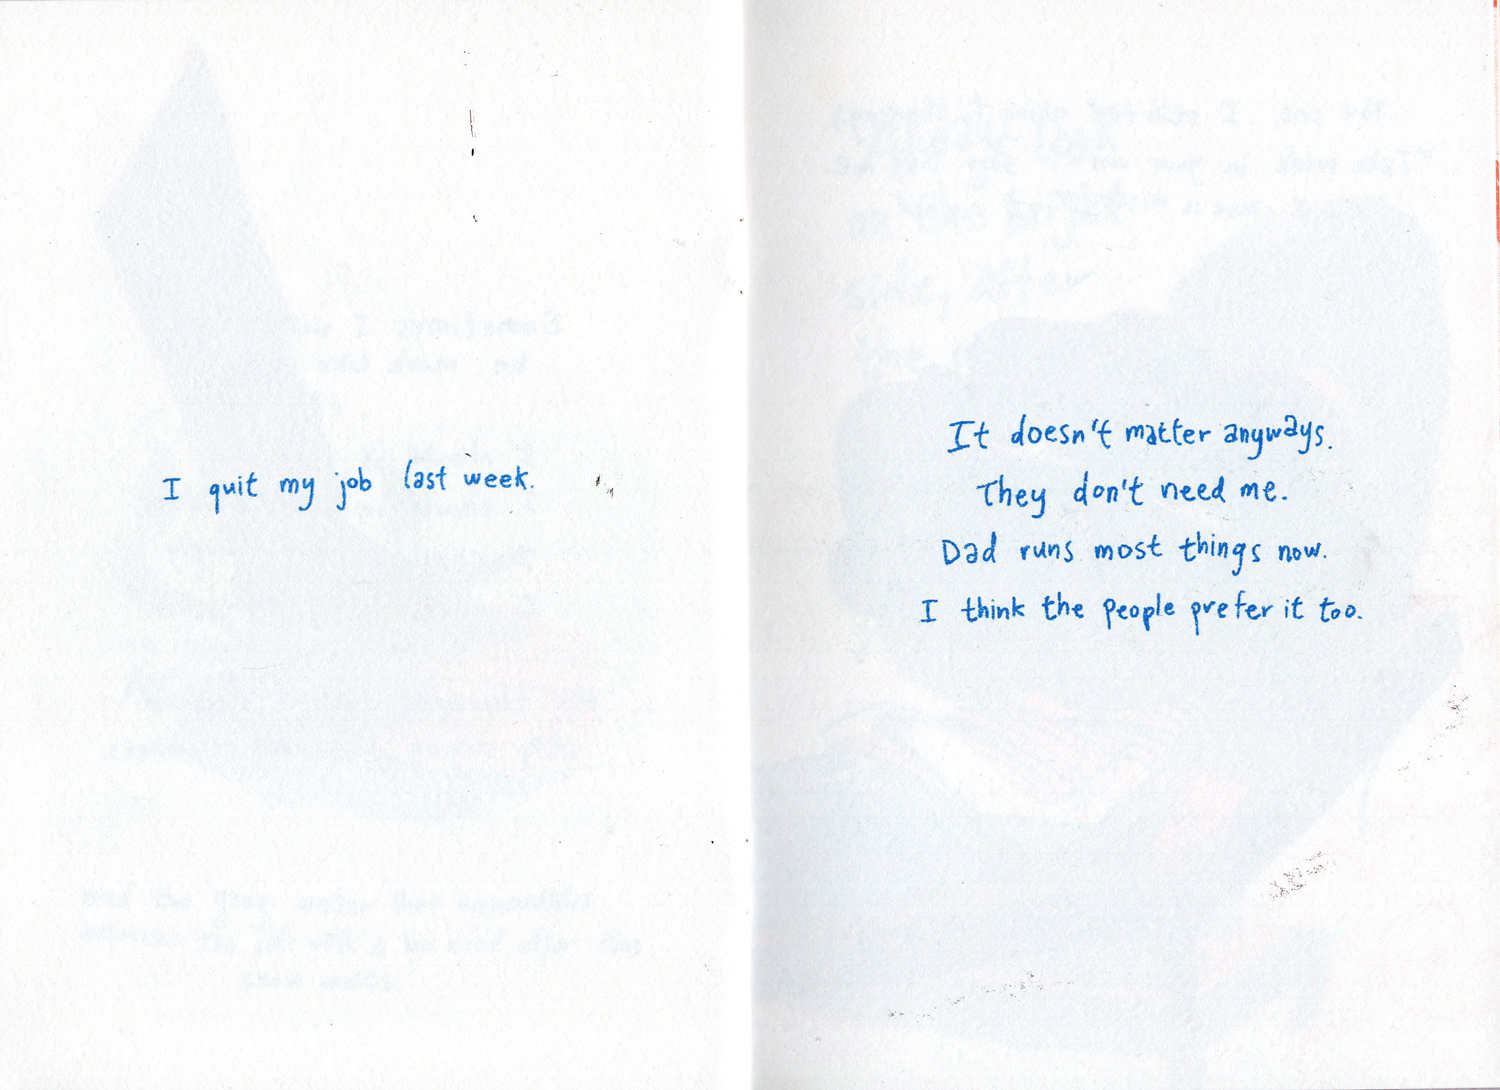 I quit my job last week.
It doesn't matter anyways.
They don't need me.
Dad runs most things now.
I think the people prefer it too.